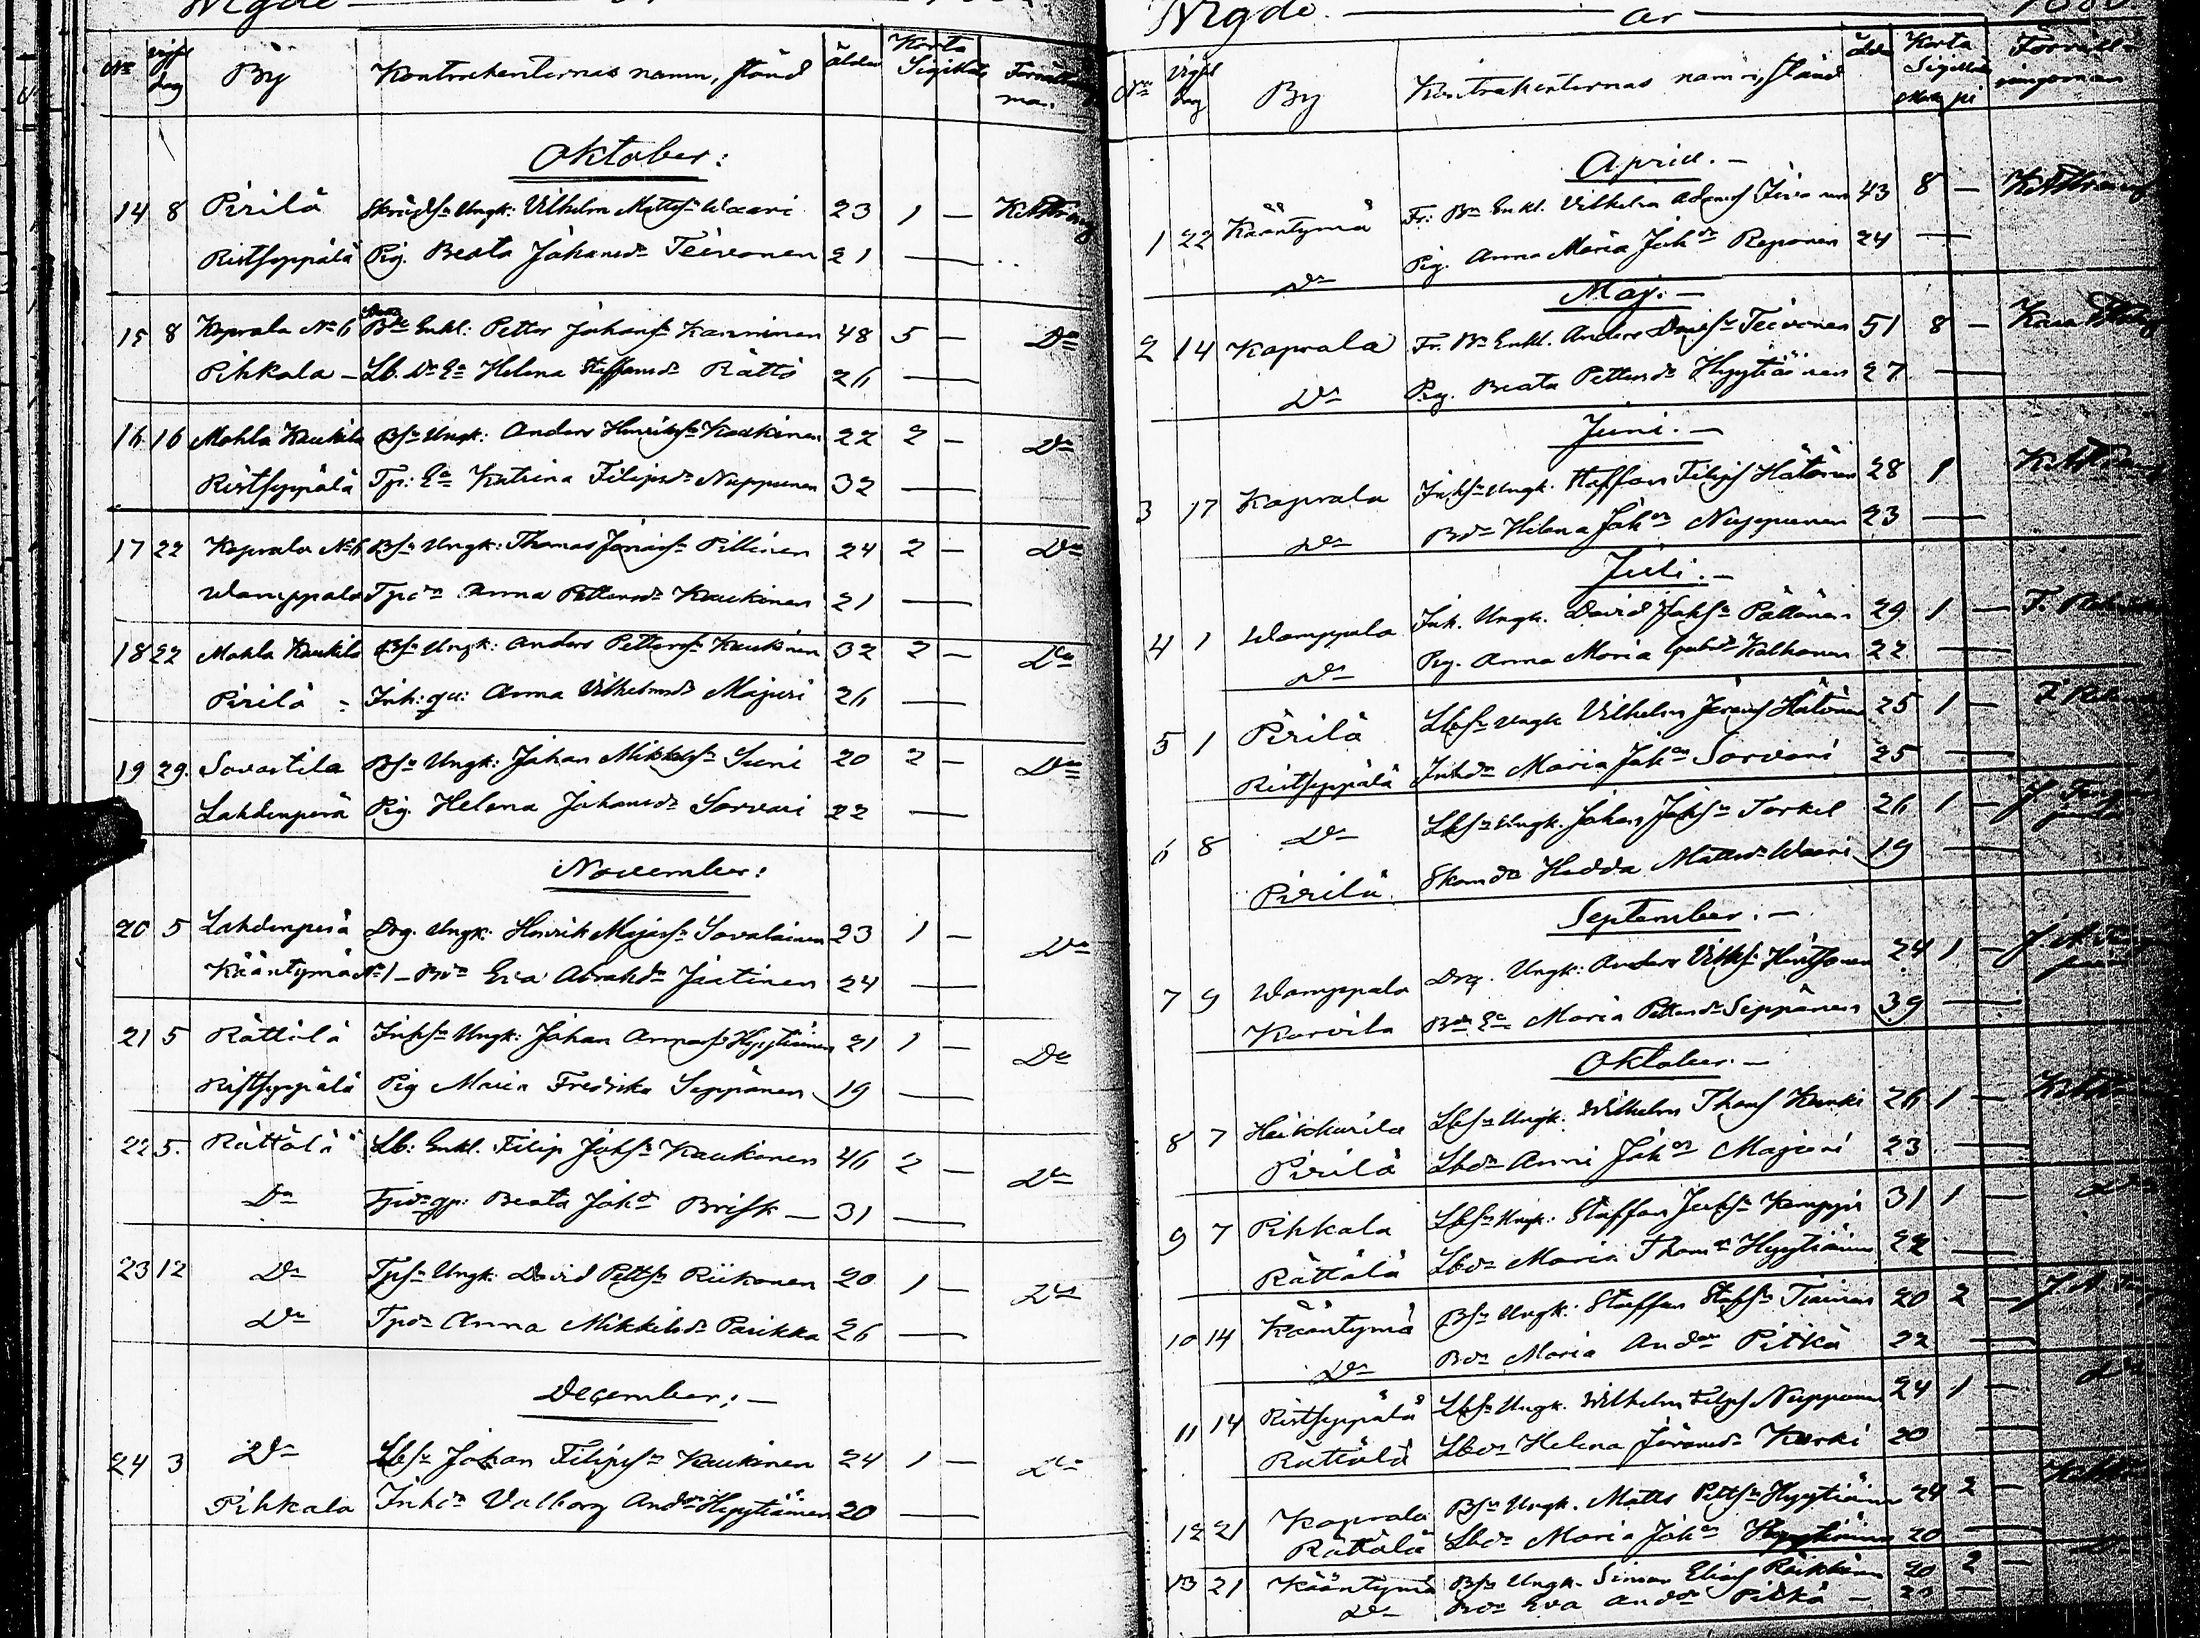 N:o
By
Kontrahenternas namn, stånd
ålder
Karta Sigillata
Oktober:
14 8 Pirilä Skrädds:n Ungk: Vilhelm Matts:n Waari 23 1 —
Ristseppälä Pig. Beata Johansd:r Teivonen 21 —
15 8 Koprala N:o 6 B:de Enkl: Petter Johans:n Kanninen 48 5 — D:o
Pihkala — Lb. D:r E:a Helena Staffansd:r Rättö 26 —
16 16 Mohla Kaukila Bs:n Ungk: Anders Henriks:n Kaukinen 22 2 — D:o
Ristseppälä Tp: E:a Katrina Filipsd:r Nuppunen 32 —
17 22 Koprala N:o 6 Bs:n Ungk: Thomas Jonas:n Pillinen 24 2 — D:o
Wamppala Tpd:r Anna Pettersd:r Kaukinen 21 —
18 22 Mohla Kaukila Bs:n Ungk: Anders Petters:n Kaukinen 32 2 — D:o
Pirilä Inh: qv: Anna Vilhelmsd:r Majuri 26 —
19 29. Savastila Bs:n Ungk: Johan Mikkels:n Suni 20 2 — D:o
Lahdenperä Pig. Helena Johansd:r Sorvari 22 —
November:
20 5 Lahdenperä Drg. Ungk: Henrik Majas:n Savolainen 23 1 — D:o
Kääntymä N:o 1 — Bd:r Eva Abrahd:r Jäätinen 24 —
21 5 Rättälä Inhs:n Ungk: Johan Hyytiäinen 21 1 — D:o
Ristseppälä Pig Maria Fredrika Seppänen 19 —
22 5. Rättälä Lb: Enkl. Filip Johs:n Kaukonen 46 2 — D:o
D:o Beata Joh:d Brisk — 31 —
23 12 D:o Tps:n Ungk: David Petts:n Riikonen 20 1 — D:o
D:o Tpd:r Anna Mikkelsd:r Parikka 26 —
December: —
24 3 D:o Lbs:n Johan Filips:n Kaukinen 24 1 — D:o
Pihkala Inhd:r Valborg And:dr Hyytiäinen 20 —
N:o
By
Kontrahenternas namn, stånd
Karta Sigillata
April. —
1 22 Kääntymä Fr: B:n Enkl. Vilhelm Adams 43 8 —
D:o Pig. Anna Maria Joh:dr Reponen 24 —
Maj: —
2 14 Koprala Fr. B:n Enkl. Anders Davids:n Teivonen 51 8 —
D:o Pig. Beata Pettersd:r Hyytiäinen 27 —
Juni. —
3 17 Koprala Inhs:n Ungk. Staffan Filips Hätönen 28 1
D:o Bd:r Helena Joh:dr Nuppunen 23 —
Juli. —
4 1 Wamppala Inh. Ungk. David Johs:n Pättönen 29 1 —
D:o Pig. Anna Maria Kalhonen 22 —
5 1 Pirilä Lbs:n Ungk Vilhelm Jörans Hätönen 25 1 —
Ristseppälä Inhd:r Maria Joh:dr Sorvari 25 —
6 8 D:o Lbs:n Ungk. Johan Johs:n Torkel 26 1 —
Pirilä Hedda Mattsd:r Waari 19 —
September: —
7 9 Wamppala Drg. Ungk: Anders Vilhs:n 24 1 —
Karvila B:de E:a Maria Pettersd:r Seppänen 39 —
Oktober: —
8 7 Heikkurila Lbs:n Ungk. Wilhelm Thoms Kurki 26 1 —
Pirilä Lbd:r Anni Joh:dr Majuri 23 —
9 7 Pihkala Lbs:n Ungk: Staffan Johs:n Kemppi 31 1 — D:o
Rättälä Lbd:r Maria Thoms:d Hyytiäinen 22 —
10 14 Kääntymä Bs:n Ungk: Staffan Stafs:n Tiainen 20 2 —
D:o Bd:r Maria And:dr Pitkä 22 —
11 14 Ristseppälä Lbs:n Ungk. Wilhelm Filips Nuppunen 24 1 — D:o
Rättälä Lbd:r Helena Jöransd:r Kurki 20 —
12 21 Koprala Bs:n Ungk. Matts Petts:n Hyytiäinen 24 2 —
Rättälä Lbd:r Maria Joh:dr Hyytiäinen 20 —
13 21 Kääntymä Bs:n Ungk. Simon Elias Räikkönen 20 2 — D:o
D:o Bd:r Eva And:dr Pitkä — 20 —